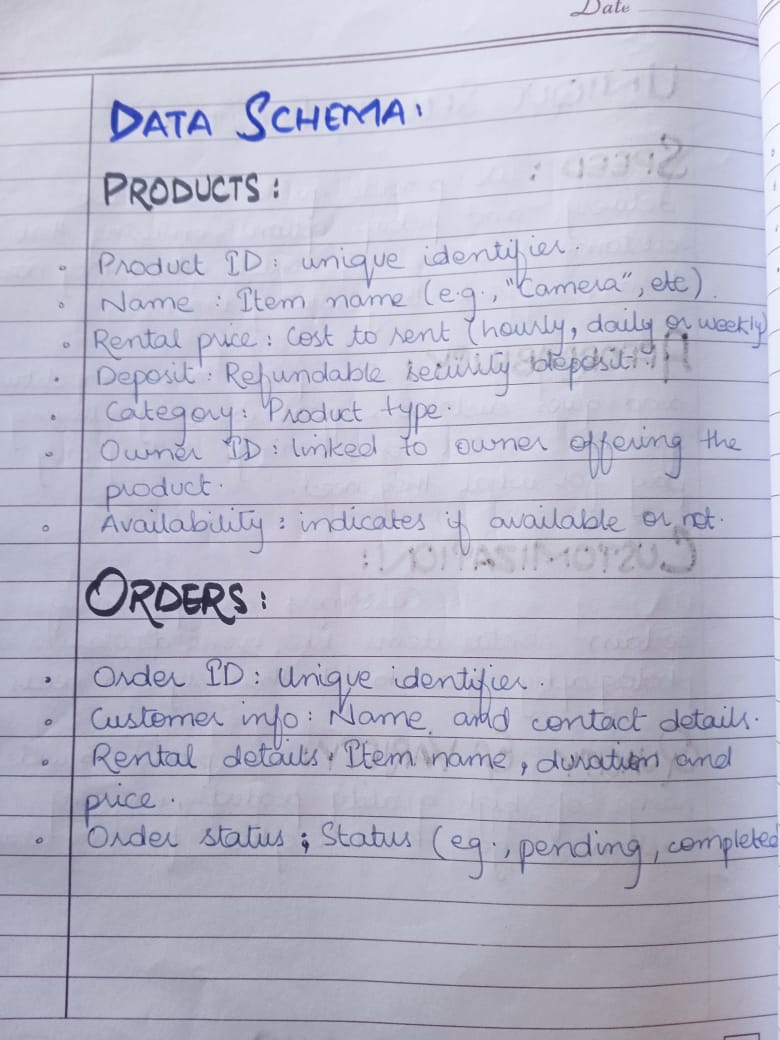 Date
DATA SCHEMA:
PRODUCTS:
• Product ID: unique identifier.
• Name: Item name (e.g., "Camera", etc).
• Rental price: Cost to rent (hourly, daily or weekly)
• Deposit: Refundable security deposit.
• Category: Product type.
• Owner ID: linked to owner offering the
product.
• Availability: indicates if available or not.
ORDERS:
• Order ID: Unique identifier.
• Customer info: Name and contact details.
• Rental details: Item name, duration and
price.
• Order status: Status (eg., pending, completed